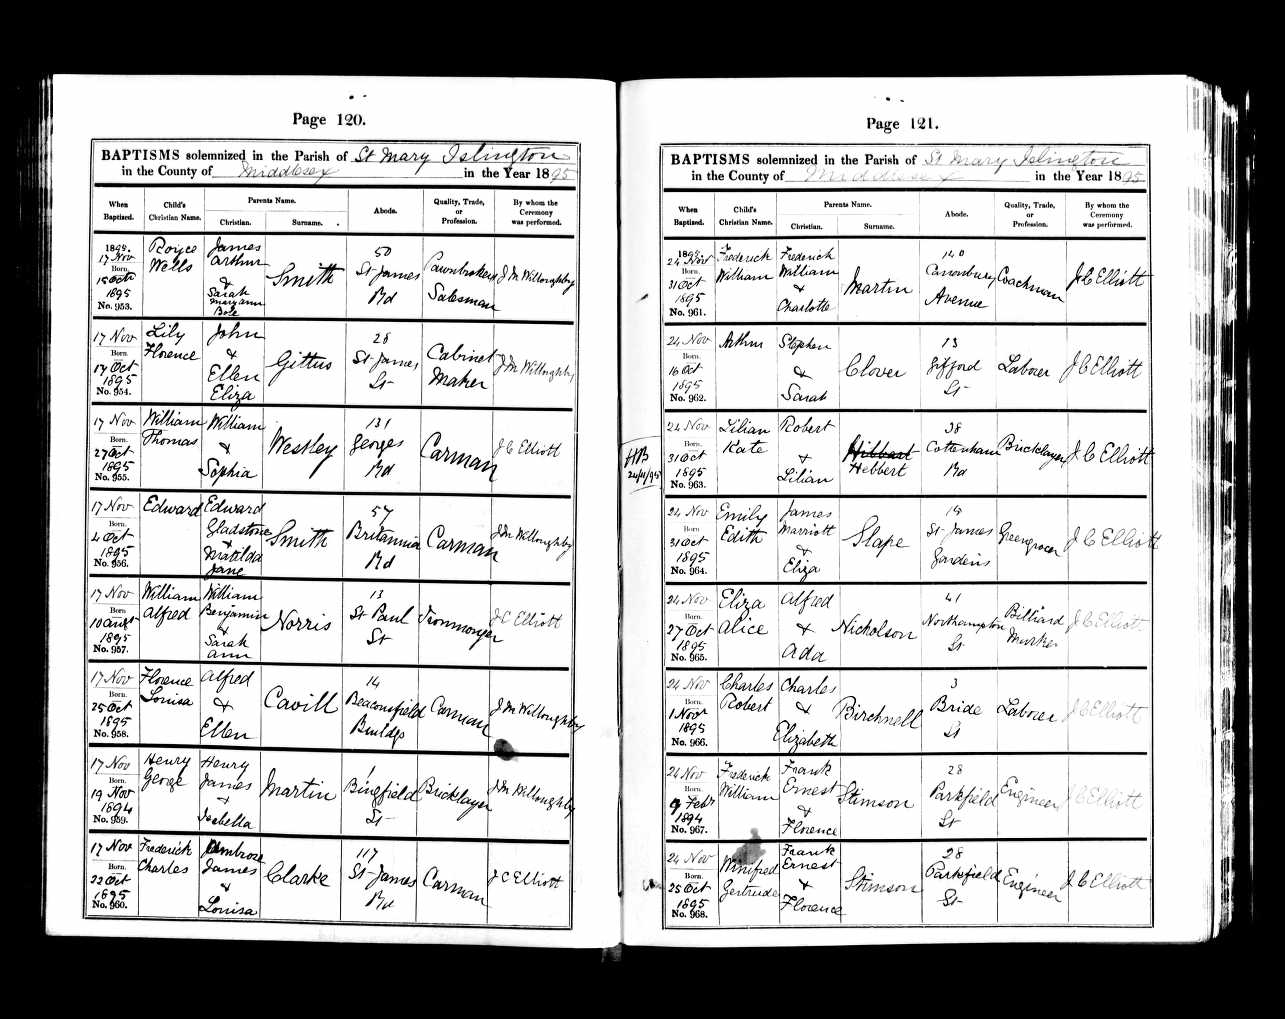 Page 120.
BAPTISMS solemnized in the Parish of St Mary Islington
in the County of Middlesex in the Year 1895
When Baptized.
Child's Christian Name.
Parents Name.
Christian.
Surname.
Abode.
Quality, Trade, or Profession.
By whom the Ceremony was performed.
1895.
17 Nov
Born.
15 Oct
1895
No. 953.
Royce
Wells
James
Arthur
&
Sarah
Mary Ann
Smith
50
St James
Rd
Pawnbrokers
Salesman
J M Willoughby
17 Nov
Born.
17 Oct
1895
No. 954.
Lily
Florence
John
&
Ellen
Eliza
Gittus
28
St James
St
Cabinet
Maker
J M Willoughby
17 Nov
Born.
27 Oct
1895
No. 955.
William
Thomas
William
&
Sophia
Westley
131
Georges
Rd
Carman
J C Elliott
17 Nov
Born.
4 Oct
1895
No. 956.
Edward
Edward
Gladstone
&
Matilda
Jane
Smith
57
Britannia
Rd
Carman
J M Willoughby
17 Nov
Born
10 Augt
1895
No. 957.
William
Alfred
William
Benjamin
&
Sarah
Ann
Norris
13
St Paul
St
Ironmonger
J C Elliott
17 Nov
Born.
25 Oct
1895
No. 958.
Florence
Louisa
Alfred
&
Ellen
Cavill
14
Beaconsfield
Buildgs
Carman
J M Willoughby
17 Nov
Born.
19 Nov
1894
No. 959.
Henry
George
Henry
James
&
Isabella
Martin
1
Bingfield
St
Bricklayer
J M Willoughby
17 Nov
Born.
22 Oct
1895
No. 960.
Frederick
Charles
Ambrose
James
&
Louisa
Clarke
117
St James
Rd
Carman
J C Elliott
Page 121.
BAPTISMS solemnized in the Parish of St Mary Islington
in the County of Middlesex in the Year 1895
When Baptized.
Child's Christian Name.
Parents Name.
Christian.
Surname.
Abode.
Quality, Trade, or Profession.
By whom the Ceremony was performed.
1895.
24 Nov
Born.
31 Oct
1895
No. 961.
Frederick
William
Frederick
William
&
Charlotte
Martin
140
Canonbury
Avenue
Coachman
J C Elliott
24 Nov
Born.
16 Oct
1895
No. 962.
Arthur
Stephen
&
Sarah
Clover
13
Gifford
St
Laborer
J C Elliott
HB
24/11/95
24 Nov
Born.
31 Oct
1895
No. 963.
Lilian
Kate
Robert
&
Lilian
Hibbast
Hebbert
38
Cottenham
Rd
Bricklayer
J C Elliott
24 Nov
Born
31 Oct
1895
No. 964.
Emily
Edith
James
Marriott
&
Eliza
Slape
19
St James
Gardens
Greengrocer
J C Elliott
24 Nov
Born.
27 Oct
1895
No. 965.
Eliza
Alice
Alfred
&
Ada
Nicholson
41
Northampton
St
Billiard
Marker
J C Elliott.
24 Nov
Born.
1 Nov
1895
No. 966.
Charles
Robert
Charles
&
Elizabeth
Birchnell
3
Bride
St
Laborer
J C Elliott
24 Nov
Born.
9 Feby
1894
No. 967.
Frederick
William
Frank
Ernest
&
Florence
Stimson
28
Parkfield
St
Engineer
J C Elliott
24 Nov
Born.
25 Oct
1895
No. 968.
Winifred
Gertrude
Frank
Ernest
&
Florence
Stimson
28
Parkfield
St
Engineer
J C Elliott